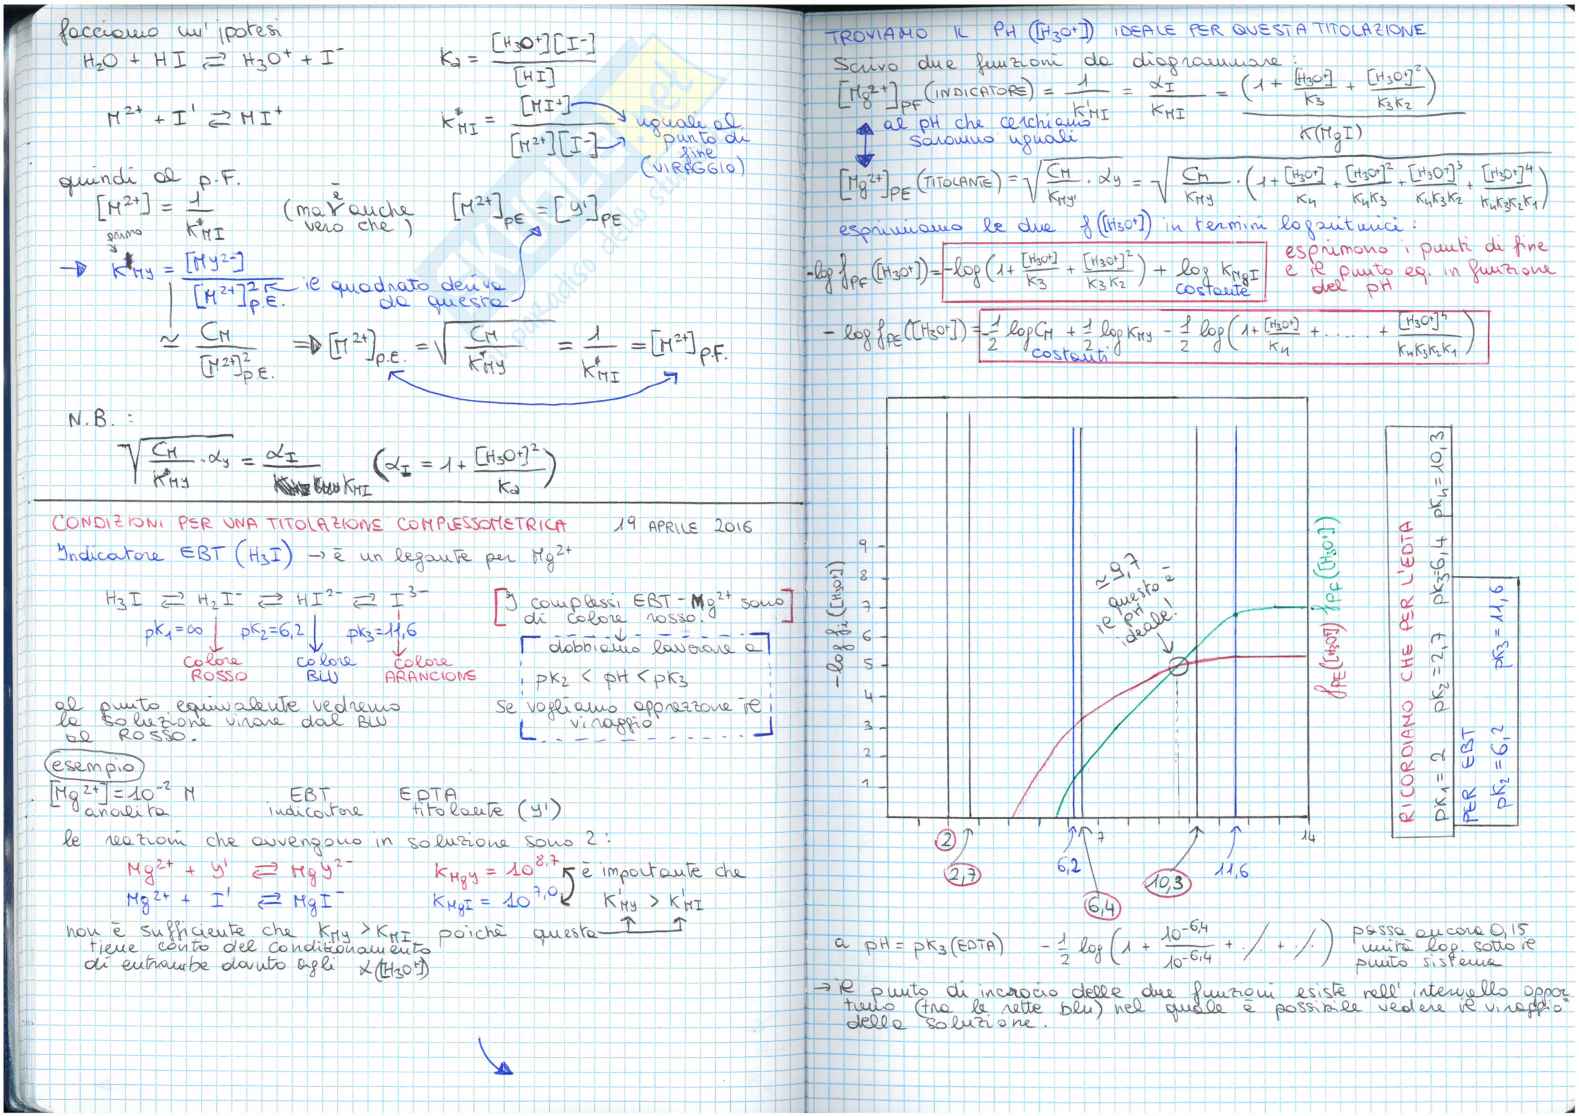 facciamo un'ipotesi
H₂O + HI ⇄ H₃O⁺ + I⁻
Ka = [H₃O⁺][I⁻] / [HI]
M²⁺ + I' ⇄ MI⁺
K*MI = [MI⁺] / [M²⁺][I⁻]
uguale al
punto di
fine
(VIRAGGIO)
quindi al p.F.
[M²⁺] = 1 / K*MI (ma è anche vero che) [M²⁺]PE = [Y']PE
K*MY = [MY²⁻] / [M²⁺]²P.E. il quadrato deriva
da questa
≃ CM / [M²⁺]²P.E. ⇒ [M²⁺]P.E. = √(CM / K*MY) = 1 / K*MI = [M²⁺]P.F.
N.B. :
√(CM / K*MY · αY) = αI / KMI (αI = 1 + [H₃O⁺]² / Ka)
CONDIZIONI PER UNA TITOLAZIONE COMPLESSOMETRICA 19 APRILE 2016
Indicatore EBT (H₃I) → è un legante per Mg²⁺
H₃I ⇄ H₂I⁻ ⇄ HI²⁻ ⇄ I³⁻
pK₁=∞ pK₂=6,2 pK₃=11,6
colore ROSSO
colore BLU
colore ARANCIONE
[I complessi EBT-Mg²⁺ sono
di colore rosso.]
dobbiamo lavorare a
pK₂ < pH < pK₃
se vogliamo apprezzare il
viraggio
al punto equivalente vedremo
la soluzione virare dal BLU
al ROSSO.
esempio
[Mg²⁺] = 10⁻² M EBT EDTA
analita indicatore titolante (Y')
le reazioni che avvengono in soluzione sono 2:
Mg²⁺ + Y' ⇄ MgY²⁻ KMgY = 10⁸,⁷ è importante che
Mg²⁺ + I' ⇄ MgI⁻ KMgI = 10⁷,⁰ K'MY > K'MI
non è sufficiente che KMY > KMI poichè questa
tiene conto del condizionamento
di entrambe dovuto agli α([H₃O⁺])
TROVIAMO IL PH ([H₃O⁺]) IDEALE PER QUESTA TITOLAZIONE
Scrivo due funzioni da diagrammare:
[Mg²⁺]PF (INDICATORE) = 1 / K'MI = αI / KMI = (1 + [H₃O⁺]/K₃ + [H₃O⁺]²/K₃K₂) / K(MgI)
al pH che cerchiamo
saranno uguali
[Mg²⁺]PE (TITOLANTE) = √(CM/KMY · αY) = √(CM/KMY · (1 + [H₃O⁺]/K₄ + [H₃O⁺]²/K₄K₃ + [H₃O⁺]³/K₄K₃K₂ + [H₃O⁺]⁴/K₄K₃K₂K₁))
esprimiamo le due f([H₃O⁺]) in termini logaritmici:
-log fPF([H₃O⁺]) = -log(1 + [H₃O⁺]/K₃ + [H₃O⁺]²/K₃K₂) + log KMgI
costante
esprimono i punti di fine
e il punto eq. in funzione
del pH
-log fPE([H₃O⁺]) = -1/2 log CM + 1/2 log KMY - 1/2 log(1 + [H₃O⁺]/K₄ + ..... + [H₃O⁺]⁴/K₄K₃K₂K₁)
costanti
-log fi([H₃O⁺])
9
8
7
6
5
4
3
2
1
≃ 9,7
questo è
il pH
ideale!
fPE([H₃O⁺]) fPF([H₃O⁺])
2 7 14
2,7 6,2 10,3 11,6
6,4
RICORDIAMO CHE PER L'EDTA
pK₁=2 pK₂=2,7 pK₃=6,4 pK₄=10,3
PER EBT
pK₂=6,2 pK₃=11,6
a pH = pK₃ (EDTA) -1/2 log(1 + 10⁻⁶,⁴/10⁻⁶,⁴ + ·/· + ·/·) passa ancora 0,15
unità log. sotto il
punto sistema
→ il punto di incrocio delle due funzioni esiste nell'intervallo oppor
tuno (tra le rette blu) nel quale è possibile vedere il viraggio
della soluzione.